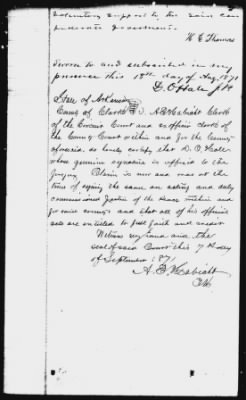 voluntary support to the said con
federate government.
W. E. Thomas
Sworn to and subscribed in my
presence this 18th day of Aug. 1871
D. O. Hale J.P.
State of Arkansas
County of Clark I, A. B. Clerk
of the Circuit Court and ex officio clerk of
the County Court within and for the County
aforesaid, do hereby certify that D. O. Hale
whose genuine signature is affixed to the
foregoing Claim is now and was at the
time of signing the same an acting and duly
commissioned Justice of the Peace within and
for said county and that all of his official
acts are entitled to full faith and credit
Witness my hand and the
seal of said Court this 7th day
of September 1871
A. B.
Clk